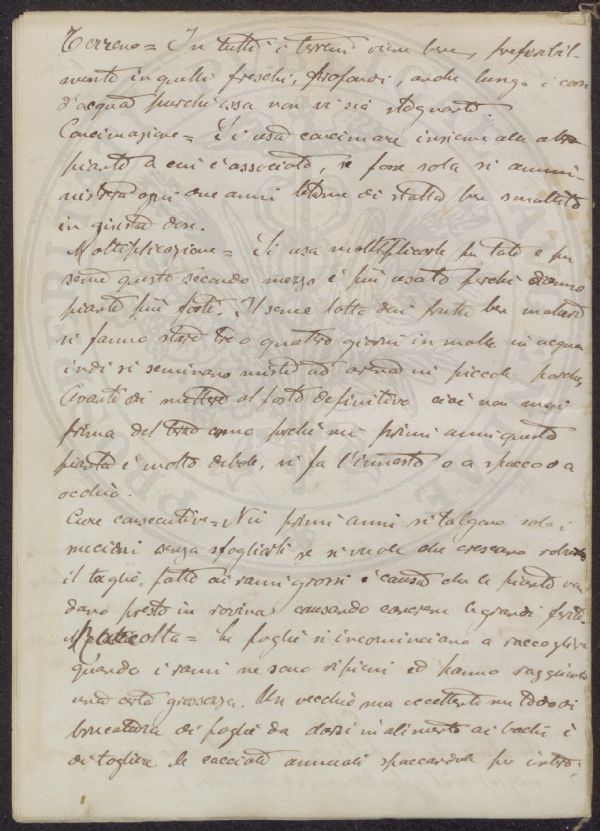 Terreno = In tutti i terreni viene bene, preferibil-
mente in quelli freschi, profondi, anche lungo i corsi
d'acqua purchè essa non vi sia stagnante.
Concimazione = Si usa concimare insieme alle altre
piante a cui è associato, se fosse sola si ammi-
nistrerà ogni due anni letame di stalla ben smaltito
in giusta dose.
Moltiplicazione = Si usa moltiplicarlo per talee e per
seme questo secondo mezzo è più usato perchè danno
piante più forti. Il seme tolto dai frutti ben maturi
si fanno stare tre o quattro giorni in molle in acqua
indi si seminano misto ad arena in piccole porche
Avanti di metterlo al posto definitivo cioè non mai
prima del terzo anno perchè nei primi anni questa
pianta è molto debole, si fa l'innesto o a spacco o a
occhio.
Cure consecutive = Nei primi anni si tolgano solo i
seccioni senza sfogliarli se si vuole che crescano robusti
il taglio fatto ai rami grossi è causa che le piante van-
dano presto in rovina causando cancrene le grandi ferite.
Raccolta = La foglia si incominciano a raccogliere
quando i rami ne sono ripieni ed hanno raggiunto
una certa grossezza. Un vecchio ma eccellente metodo di
brucatura di foglie da darsi in alimento ai bachi è
di togliere le cacciate annuali spaccandole per intero;